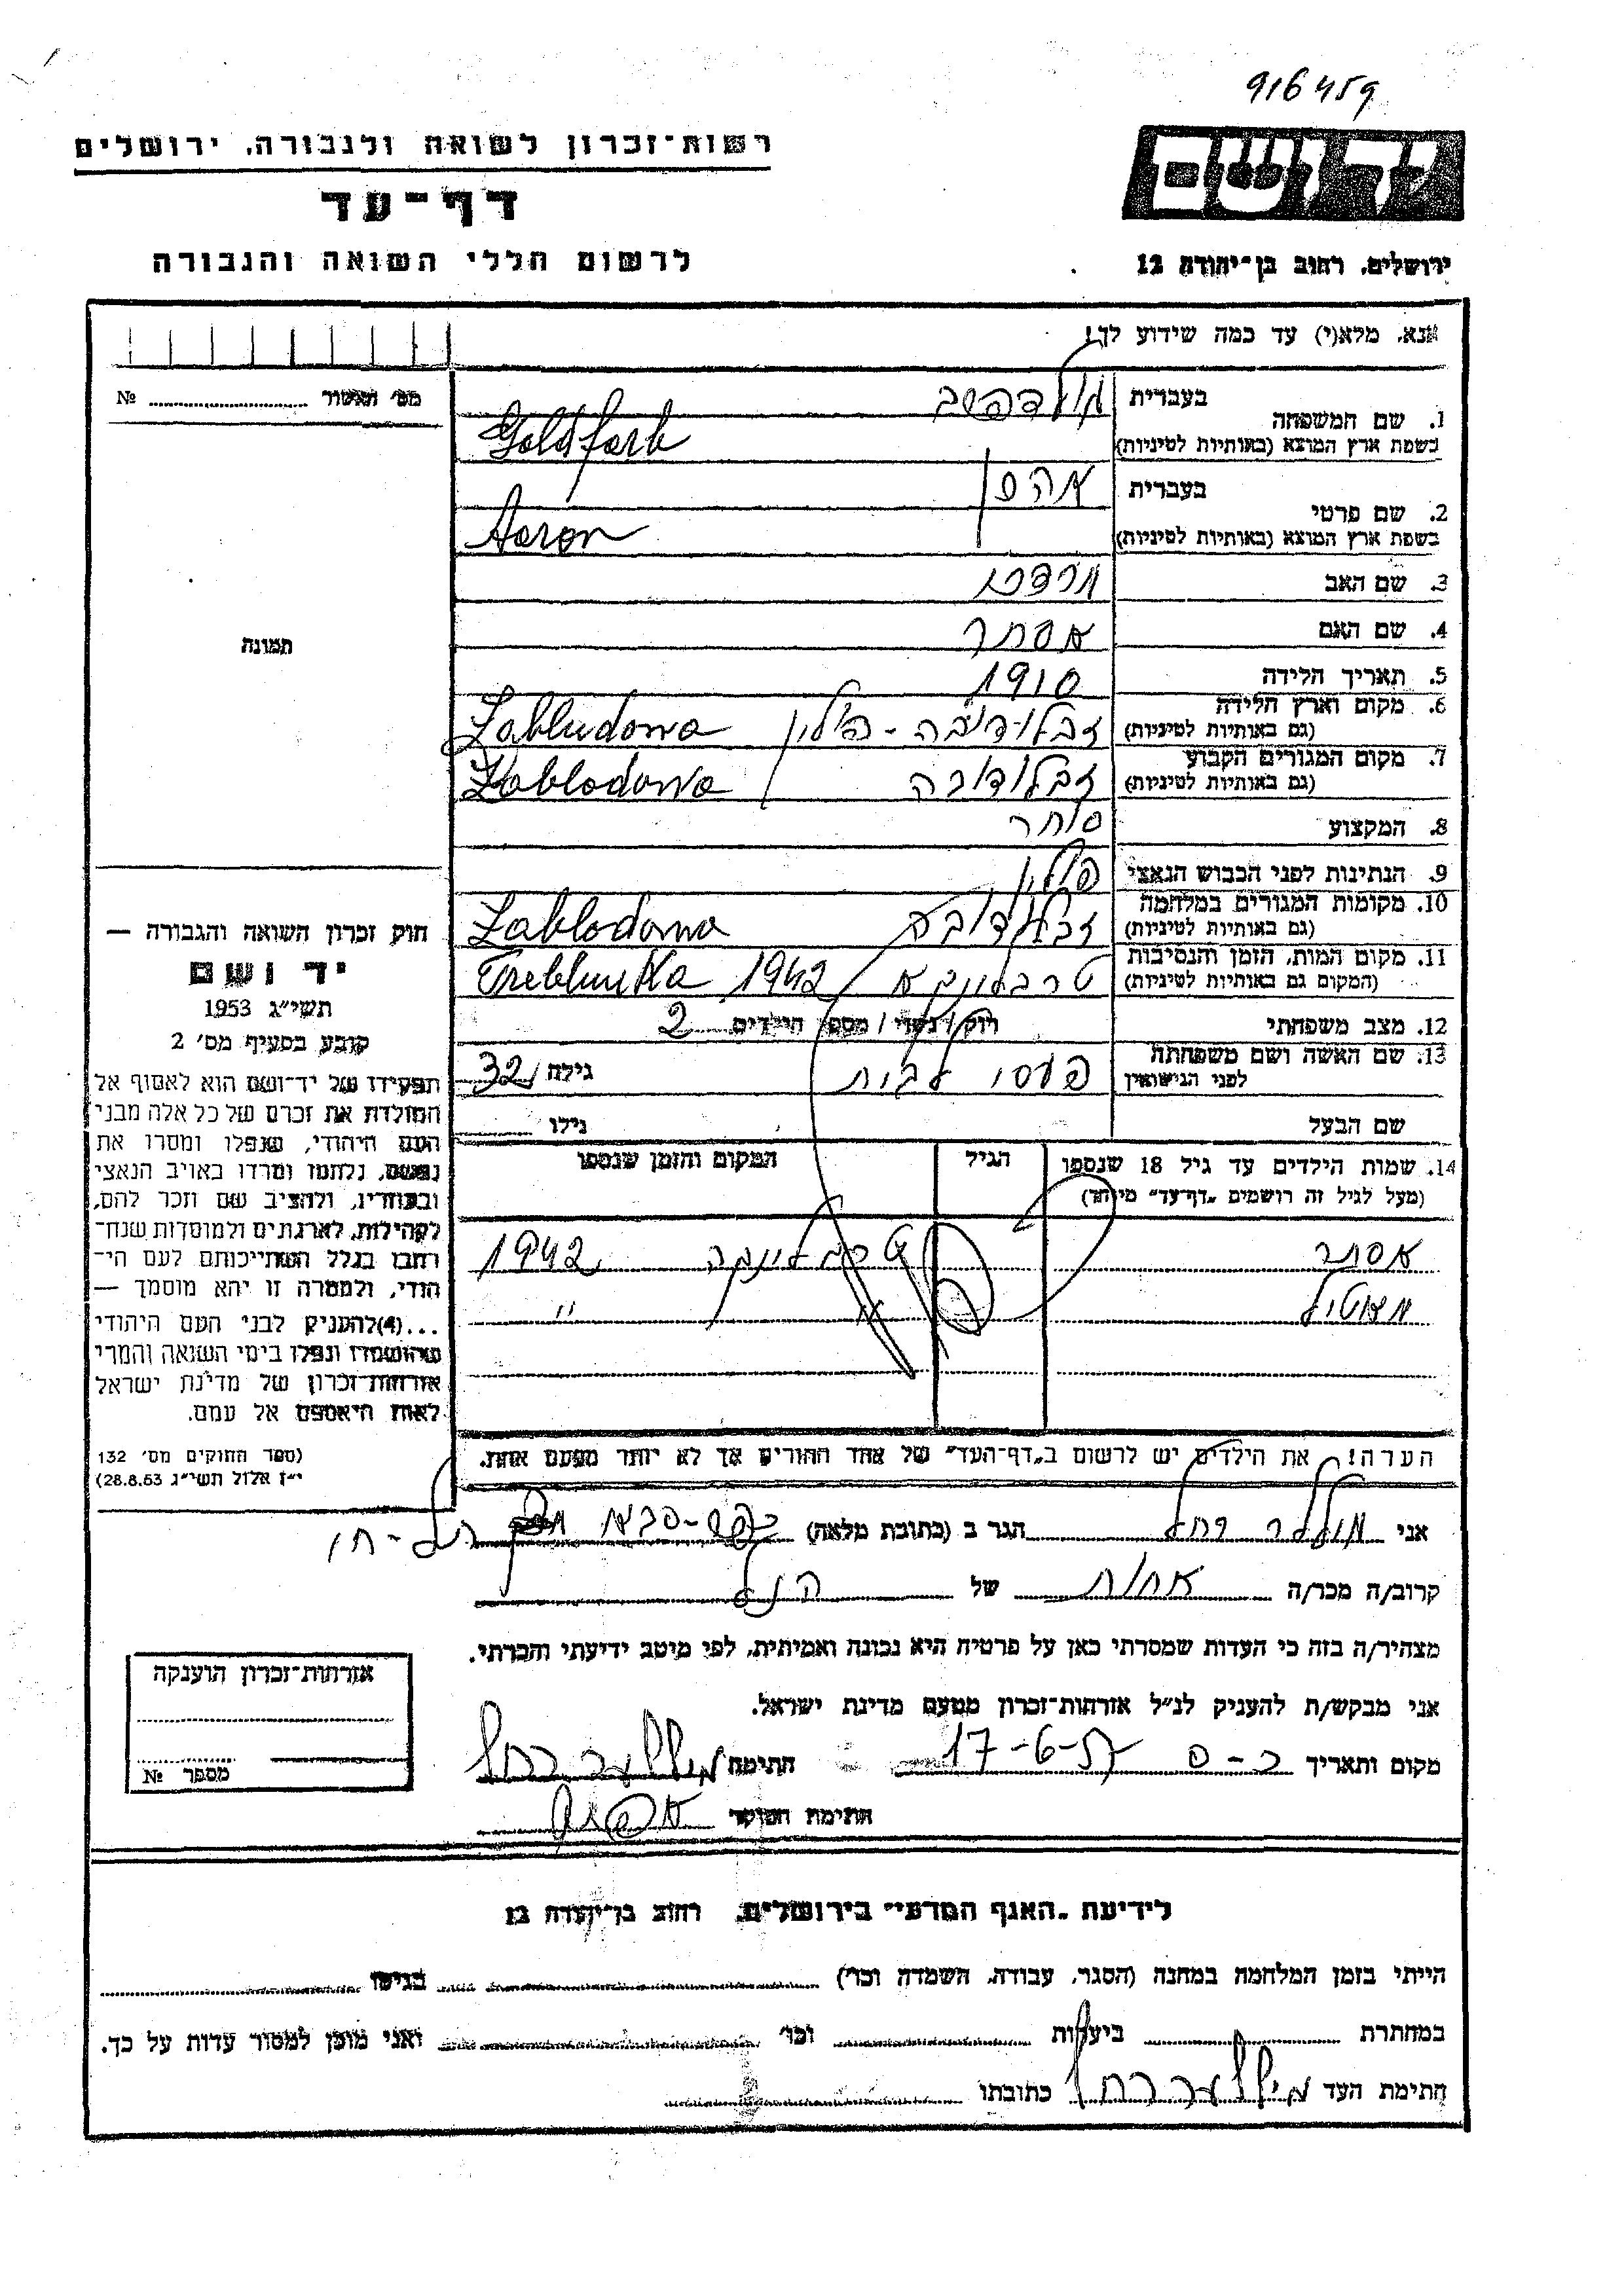 916459
רשות־זכרון לשואה ולגבורה, ירושלים
דף־עד
לרשום חללי השואה והגבורה
ירושלים, רחוב בן־יהודה 12
אנא, מלא(י) עד כמה שידוע לך!
מס' האשור № 
1. שם המשפחה בעברית גולדפרב
בשפת ארץ המוצא (באותיות לטיניות) Goldfarb
2. שם פרטי בעברית אהרן
בשפת ארץ המוצא (באותיות לטיניות) Aaron
3. שם האב מרדכי
4. שם האם אסתר
תמונה
5. תאריך הלידה 1910
6. מקום וארץ הלידה (גם באותיות לטיניות) זבלודובה - פולין Zabludowa
7. מקום המגורים הקבוע (גם באותיות לטיניות) זבלודובה Zablodowa
8. המקצוע סוחר
9. הנתינות לפני הכבוש הנאצי פולין
10. מקומות המגורים במלחמה (גם באותיות לטיניות) זבלודובה Zablodowa
11. מקום המות, הזמן והנסיבות (המקום גם באותיות לטיניות) טרבלינקא 1942 Treblinka
12. מצב משפחתי רווק / נשוי / מספר הילדים 2
13. שם האשה ושם משפחתה לפני הנישואין גילה 32
שם הבעל גילו
14. שמות הילדים עד גיל 18 שנספו
(מעל לגיל זה רושמים "דף־עד" מיוחד)
הגיל
המקום והזמן שנספו
אסתר טרבלינקה 1942
" "
הערה: את הילדים יש לרשום ב"דף־העד" של אחד ההורים אך לא יותר מפעם אחת.
חוק זכרון השואה והגבורה —
יד ושם
תשי"ג 1953
קובע בסעיף מס' 2
תפקידו של יד־ושם הוא לאסוף אל
המולדת את זכרם של כל אלה מבני
העם היהודי, שנפלו ומסרו את
נפשם, נלחמו ומרדו באויב הנאצי
ובעוזריו, ולהציב שם וזכר להם,
לקהילות, לארגונים ולמוסדות שנח־
רבו בגלל השתייכותם לעם הי־
הודי, ולמטרה זו יהא מוסמך —
...(4) להעניק לבני העם היהודי
שהושמדו ונפלו בימי השואה והמרי
אזרחות־זכרון של מדינת ישראל
לאות היאספם אל עמם.
(ספר החוקים מס' 132
י"ז אלול תשי"ג 28.8.53)
אני מילער רחל הגר ב (כתובת מלאה) כפר-סבא תל-חי
קרוב/ה מכר/ה אחות של הנ"ל
מצהיר/ה בזה כי העדות שמסרתי כאן על פרטיה היא נכונה ואמיתית, לפי מיטב ידיעתי והכרתי.
אני מבקש/ת להעניק לנ"ל אזרחות־זכרון מטעם מדינת ישראל.
מקום ותאריך כ-ס 17-6-57 חתימה מיללער רחל
חתימת הפוקד
אזרחות־זכרון הוענקה
מספר №
לידיעת "האגף המדעי" בירושלים, רחוב בן־יהודה 12
הייתי בזמן המלחמה במחנה (הסגר, עבודה, השמדה וכו') בגיטו
במחתרת ביערות וכו' ואני מוכן למסור עדות על כך.
חתימת העד מיללער רחל כתובתו